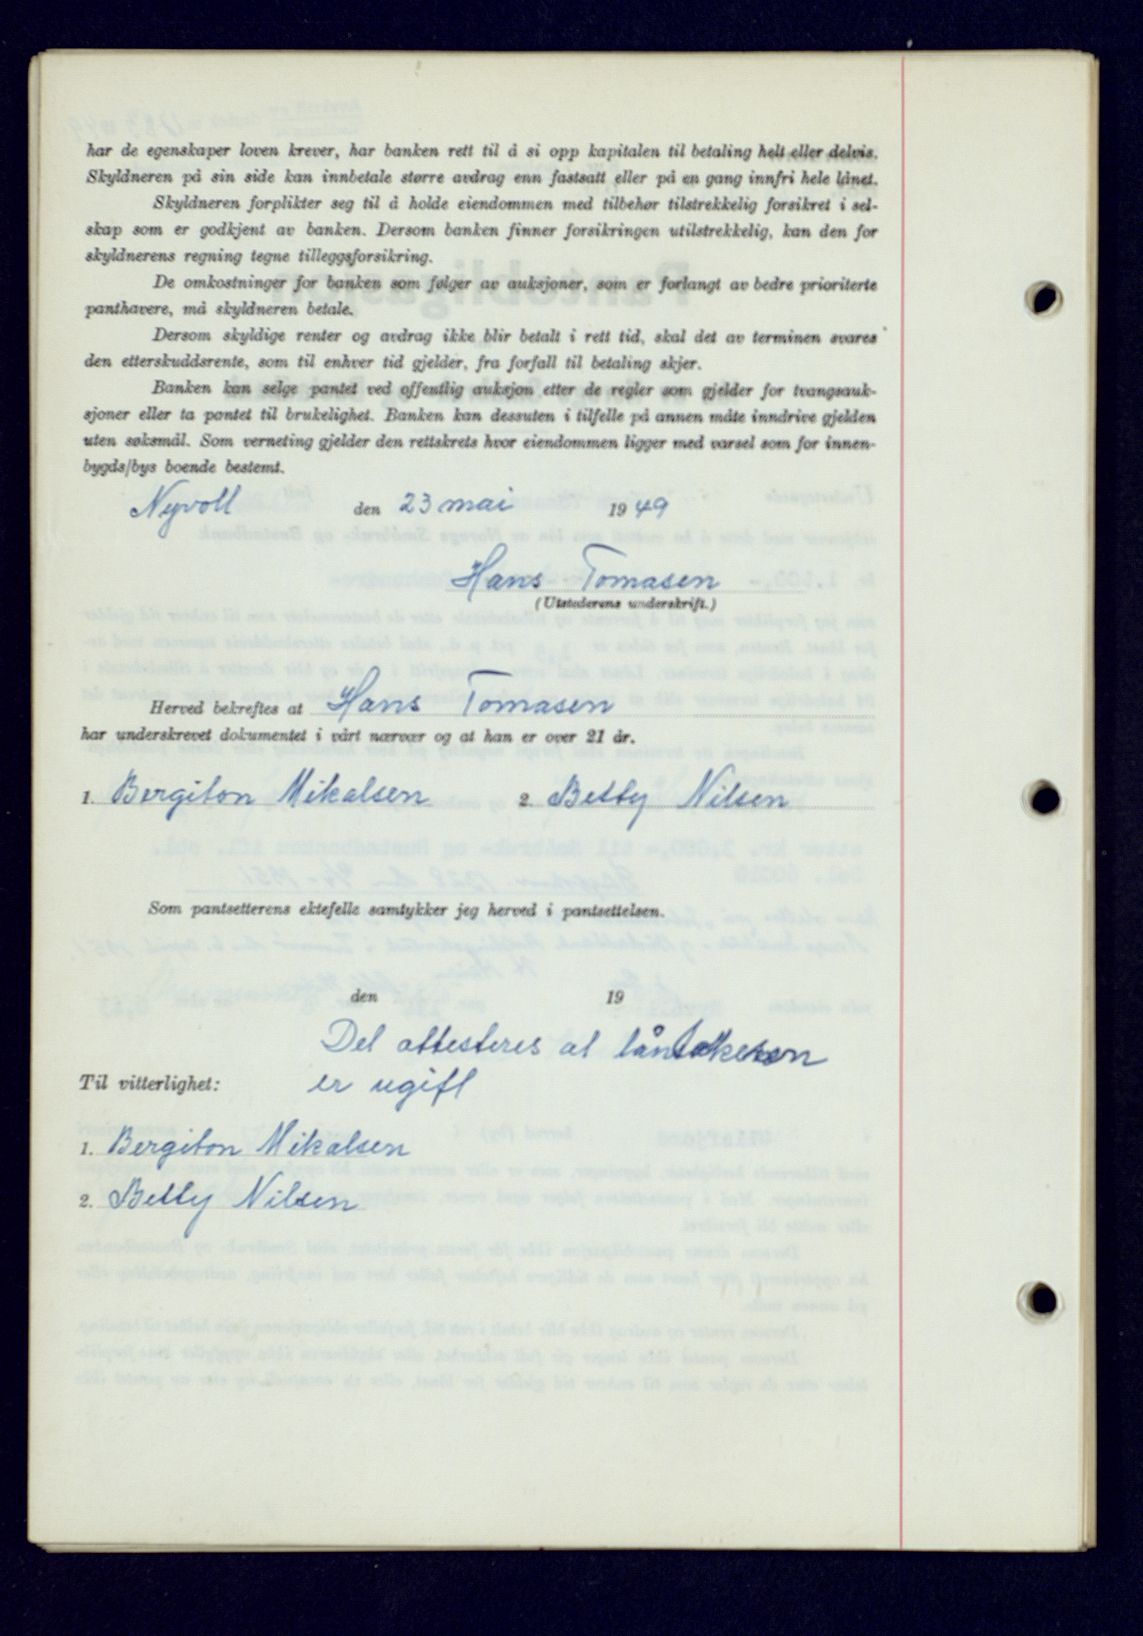 har de egenskaper loven krever, har banken rett til å si opp kapitalen til betaling helt eller delvis.
Skyldneren på sin side kan innbetale større avdrag enn fastsatt eller på en gang innfri hele lånet.
Skyldneren forplikter seg til å holde eiendommen med tilbehør tilstrekkelig forsikret i sel-
skap som er godkjent av banken. Dersom banken finner forsikringen utilstrekkelig, kan den for
skyldnerens regning tegne tilleggsforsikring.
De omkostninger for banken som følger av auksjoner, som er forlangt av bedre prioriterte
panthavere, må skyldneren betale.
Dersom skyldige renter og avdrag ikke blir betalt i rett tid, skal det av terminen svares
den etterskuddsrente, som til enhver tid gjelder, fra forfall til betaling skjer.
Banken kan selge pantet ved offentlig auksjon etter de regler som gjelder for tvangsauk-
sjoner eller ta pantet til brukelighet. Banken kan dessuten i tilfelle på annen måte inndrive gjelden
uten søksmål. Som verneting gjelder den rettskrets hvor eiendommen ligger med varsel som for innen-
bygds/bys boende bestemt.
Nyvoll den 23 mai 1949
Hans Tomasen
(Utstederens underskrift.)
Herved bekreftes at Hans Tomasen
har underskrevet dokumentet i vårt nærvær og at han er over 21 år.
1. Bergiton Mikalsen 2. Betty Nilsen
Som pantsetterens ektefelle samtykker jeg herved i pantsettelsen.
den 19
Det attesteres at låntakeren
Til vitterlighet: er ugift
1. Bergiton Mikalsen
2. Betty Nilsen